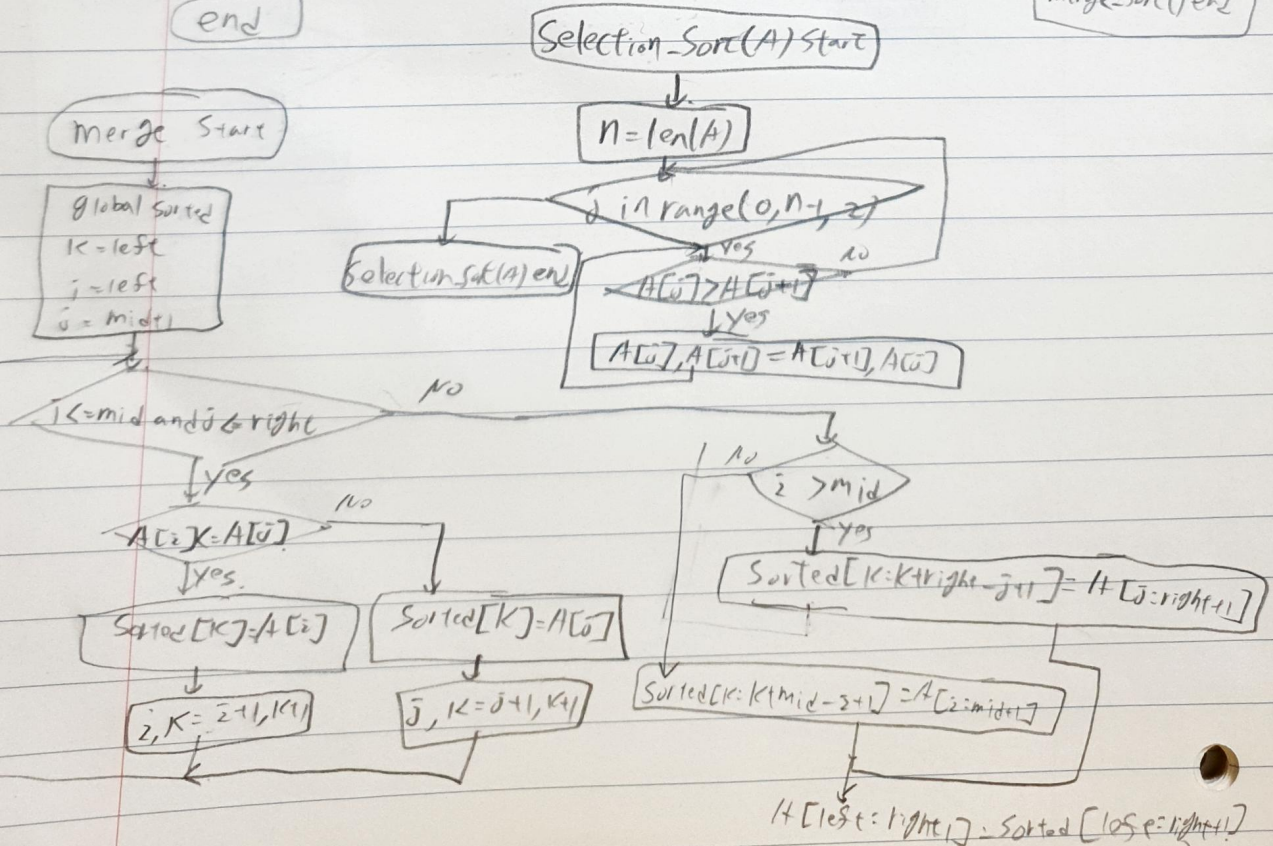 end
Selection_Sort(A) Start
n=len(A)
j in range(0,n-1,2)
yes
no
Selection_Sort(A) end
A[j]>A[j+1]
yes
A[j],A[j+1]=A[j+1],A[j]
merge start
global sorted
k=left
i=left
j=mid+1
i<=mid and j<=right
No
yes
A[i]<=A[j]
No
yes.
Sorted[k]=A[i]
i,k=i+1,k+1
Sorted[k]=A[j]
j,k=j+1,k+1
i >mid
No
yes
Sorted[k:k+right-j+1]=A[j:right+1]
Sorted[k:k+mid-i+1]=A[i:mid+1]
A[left:right+1]=Sorted[
:right+1]